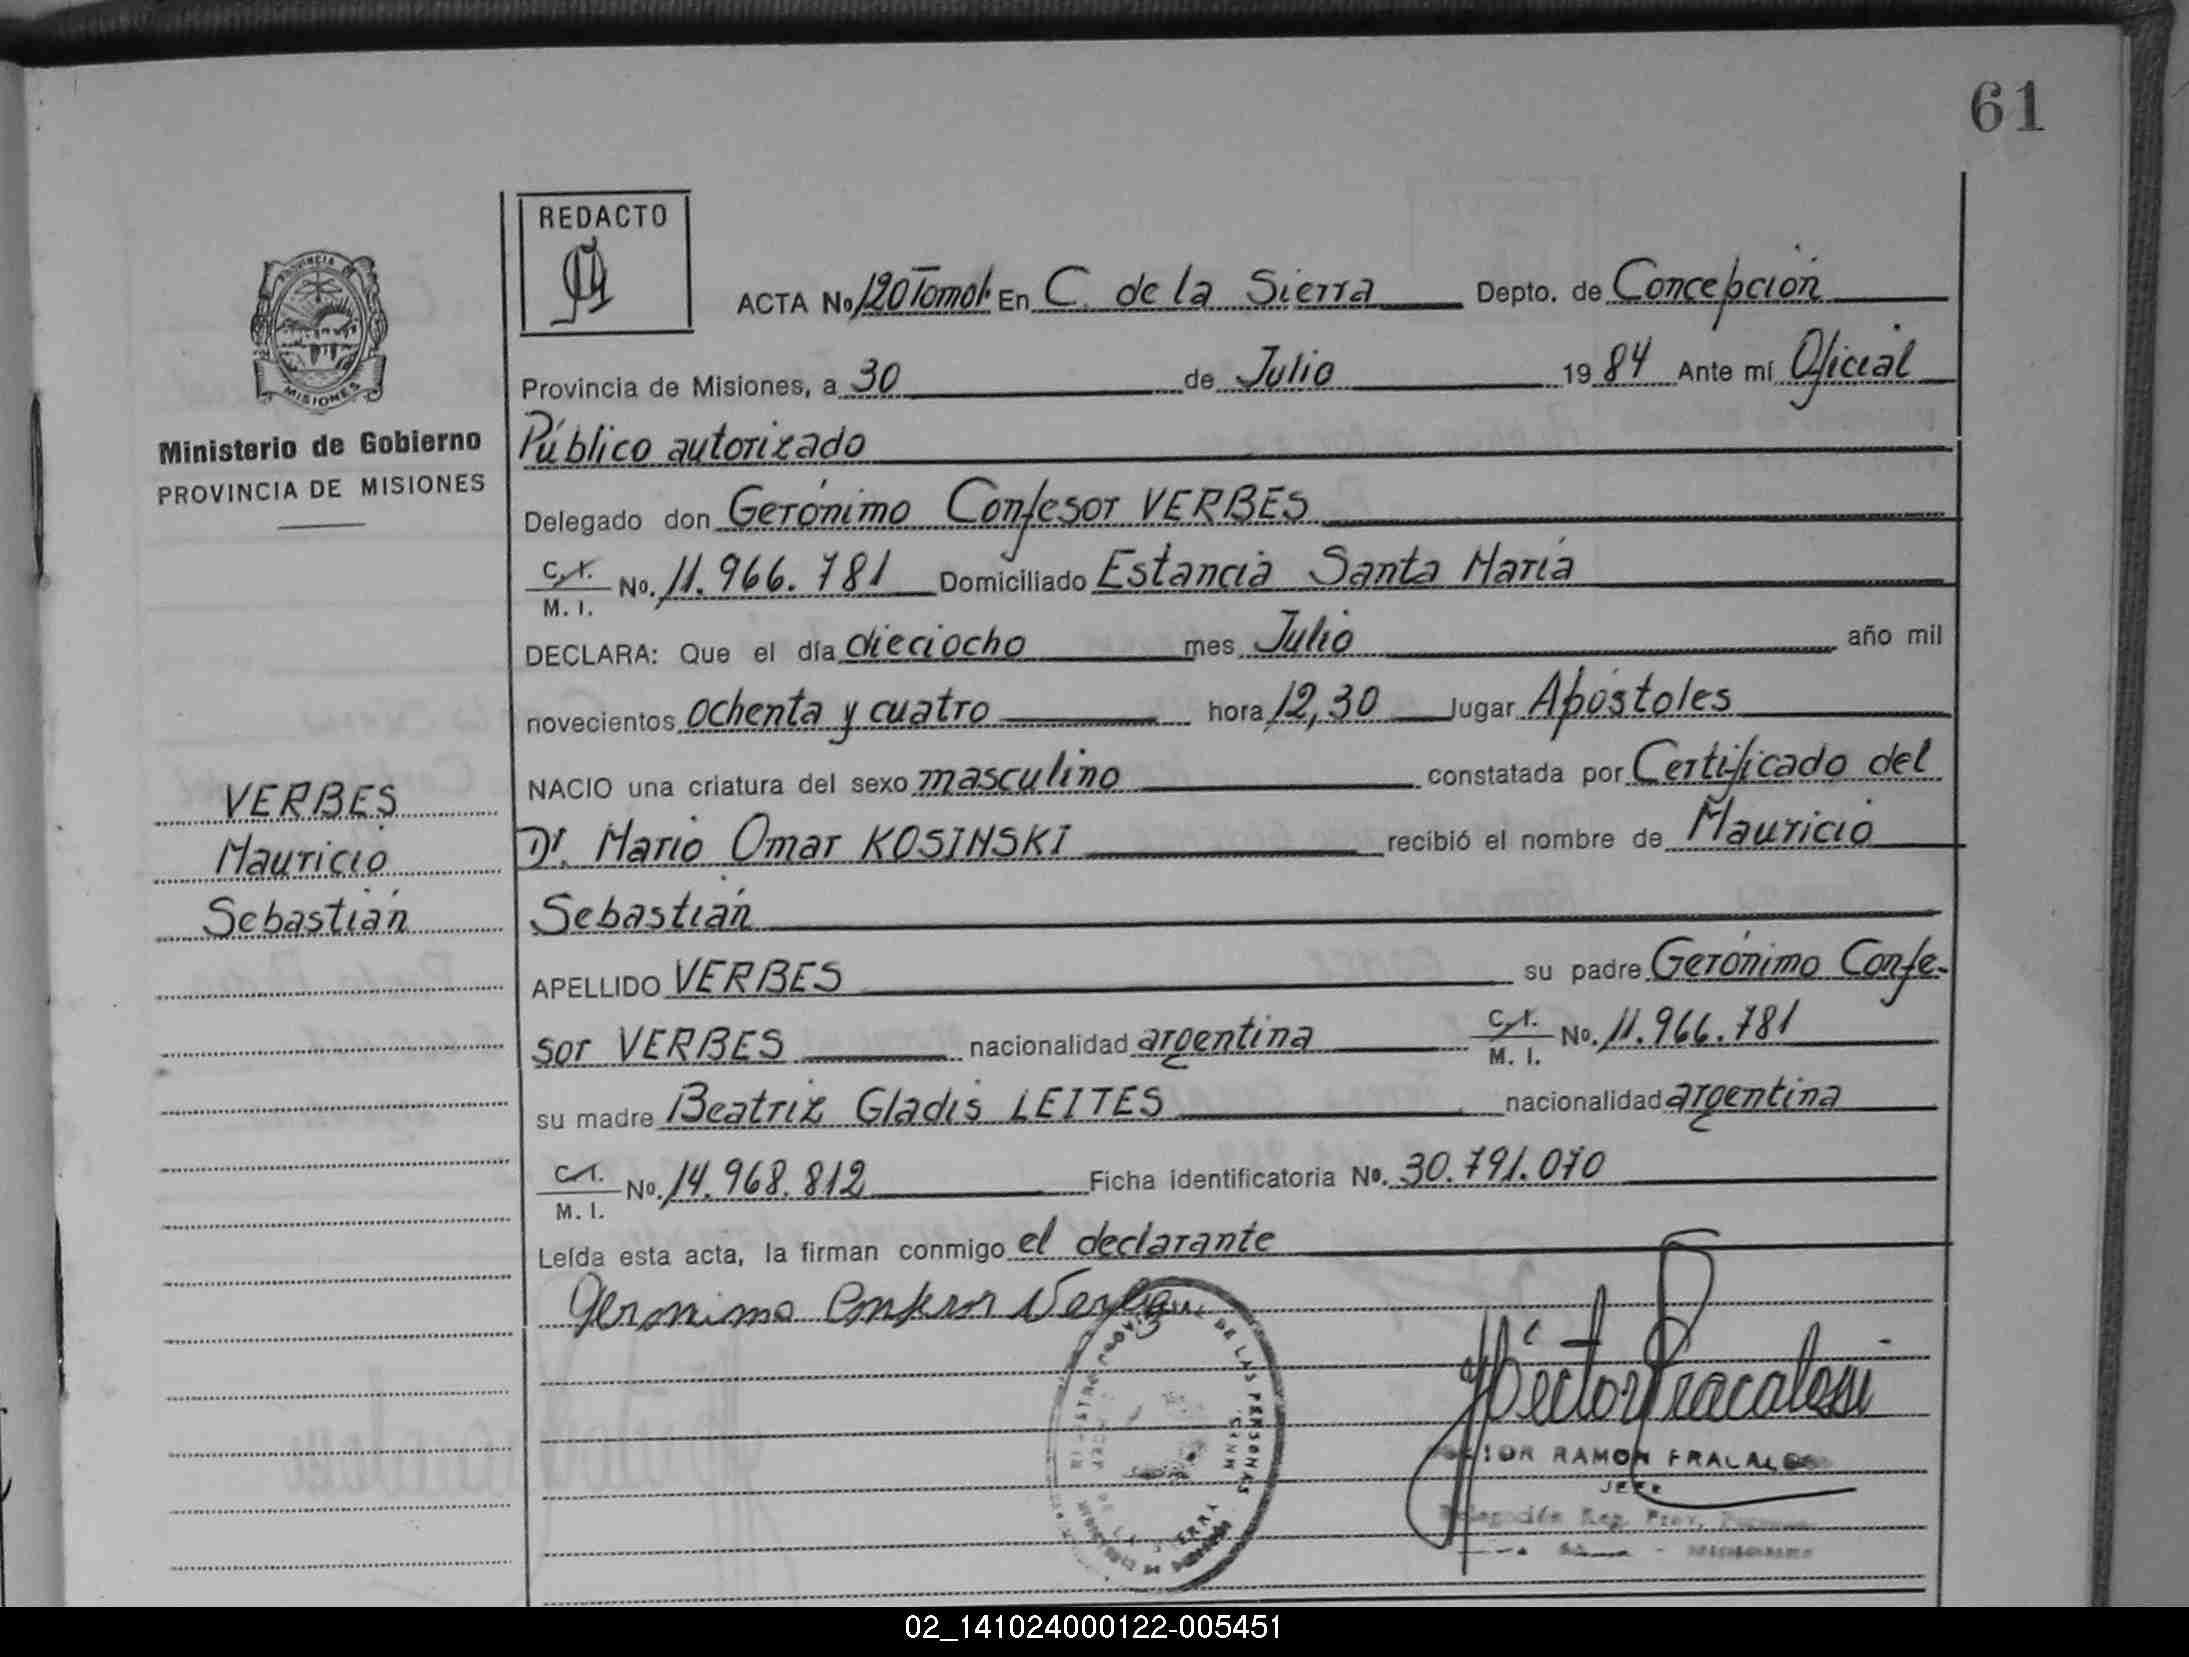 61
REDACTO
PROVINCIA
MISIONES
ACTA No 120 Tomo I En C. de la Sierra Depto. de Concepción
Provincia de Misiones, a 30 de Julio 19 84 Ante mí Oficial
Ministerio de Gobierno
PROVINCIA DE MISIONES
Público autorizado
Delegado don Gerónimo Confesor VERBES
C. I. M. I. No. 11.966.781 Domiciliado Estancia Santa María
DECLARA: Que el día dieciocho mes Julio año mil
novecientos ochenta y cuatro hora 12,30 lugar Apóstoles
NACIO una criatura del sexo masculino constatada por Certificado del
VERBES
Dr. Mario Omar KOSINSKI recibió el nombre de Mauricio
Mauricio
Sebastián
Sebastián
APELLIDO VERBES su padre Gerónimo Confe-
sor VERBES nacionalidad argentina C. I. M. I. No. 11.966.781
su madre Beatriz Gladis LEITES nacionalidad argentina
C. I. M. I. No. 14.968.812 Ficha identificatoria No. 30.791.070
Leída esta acta, la firman conmigo el declarante
Geronimo Confesor Verbes
DE LAS PERSONAS
Héctor Fracalossi
RAMON
JEFE
02_141024000122-005451